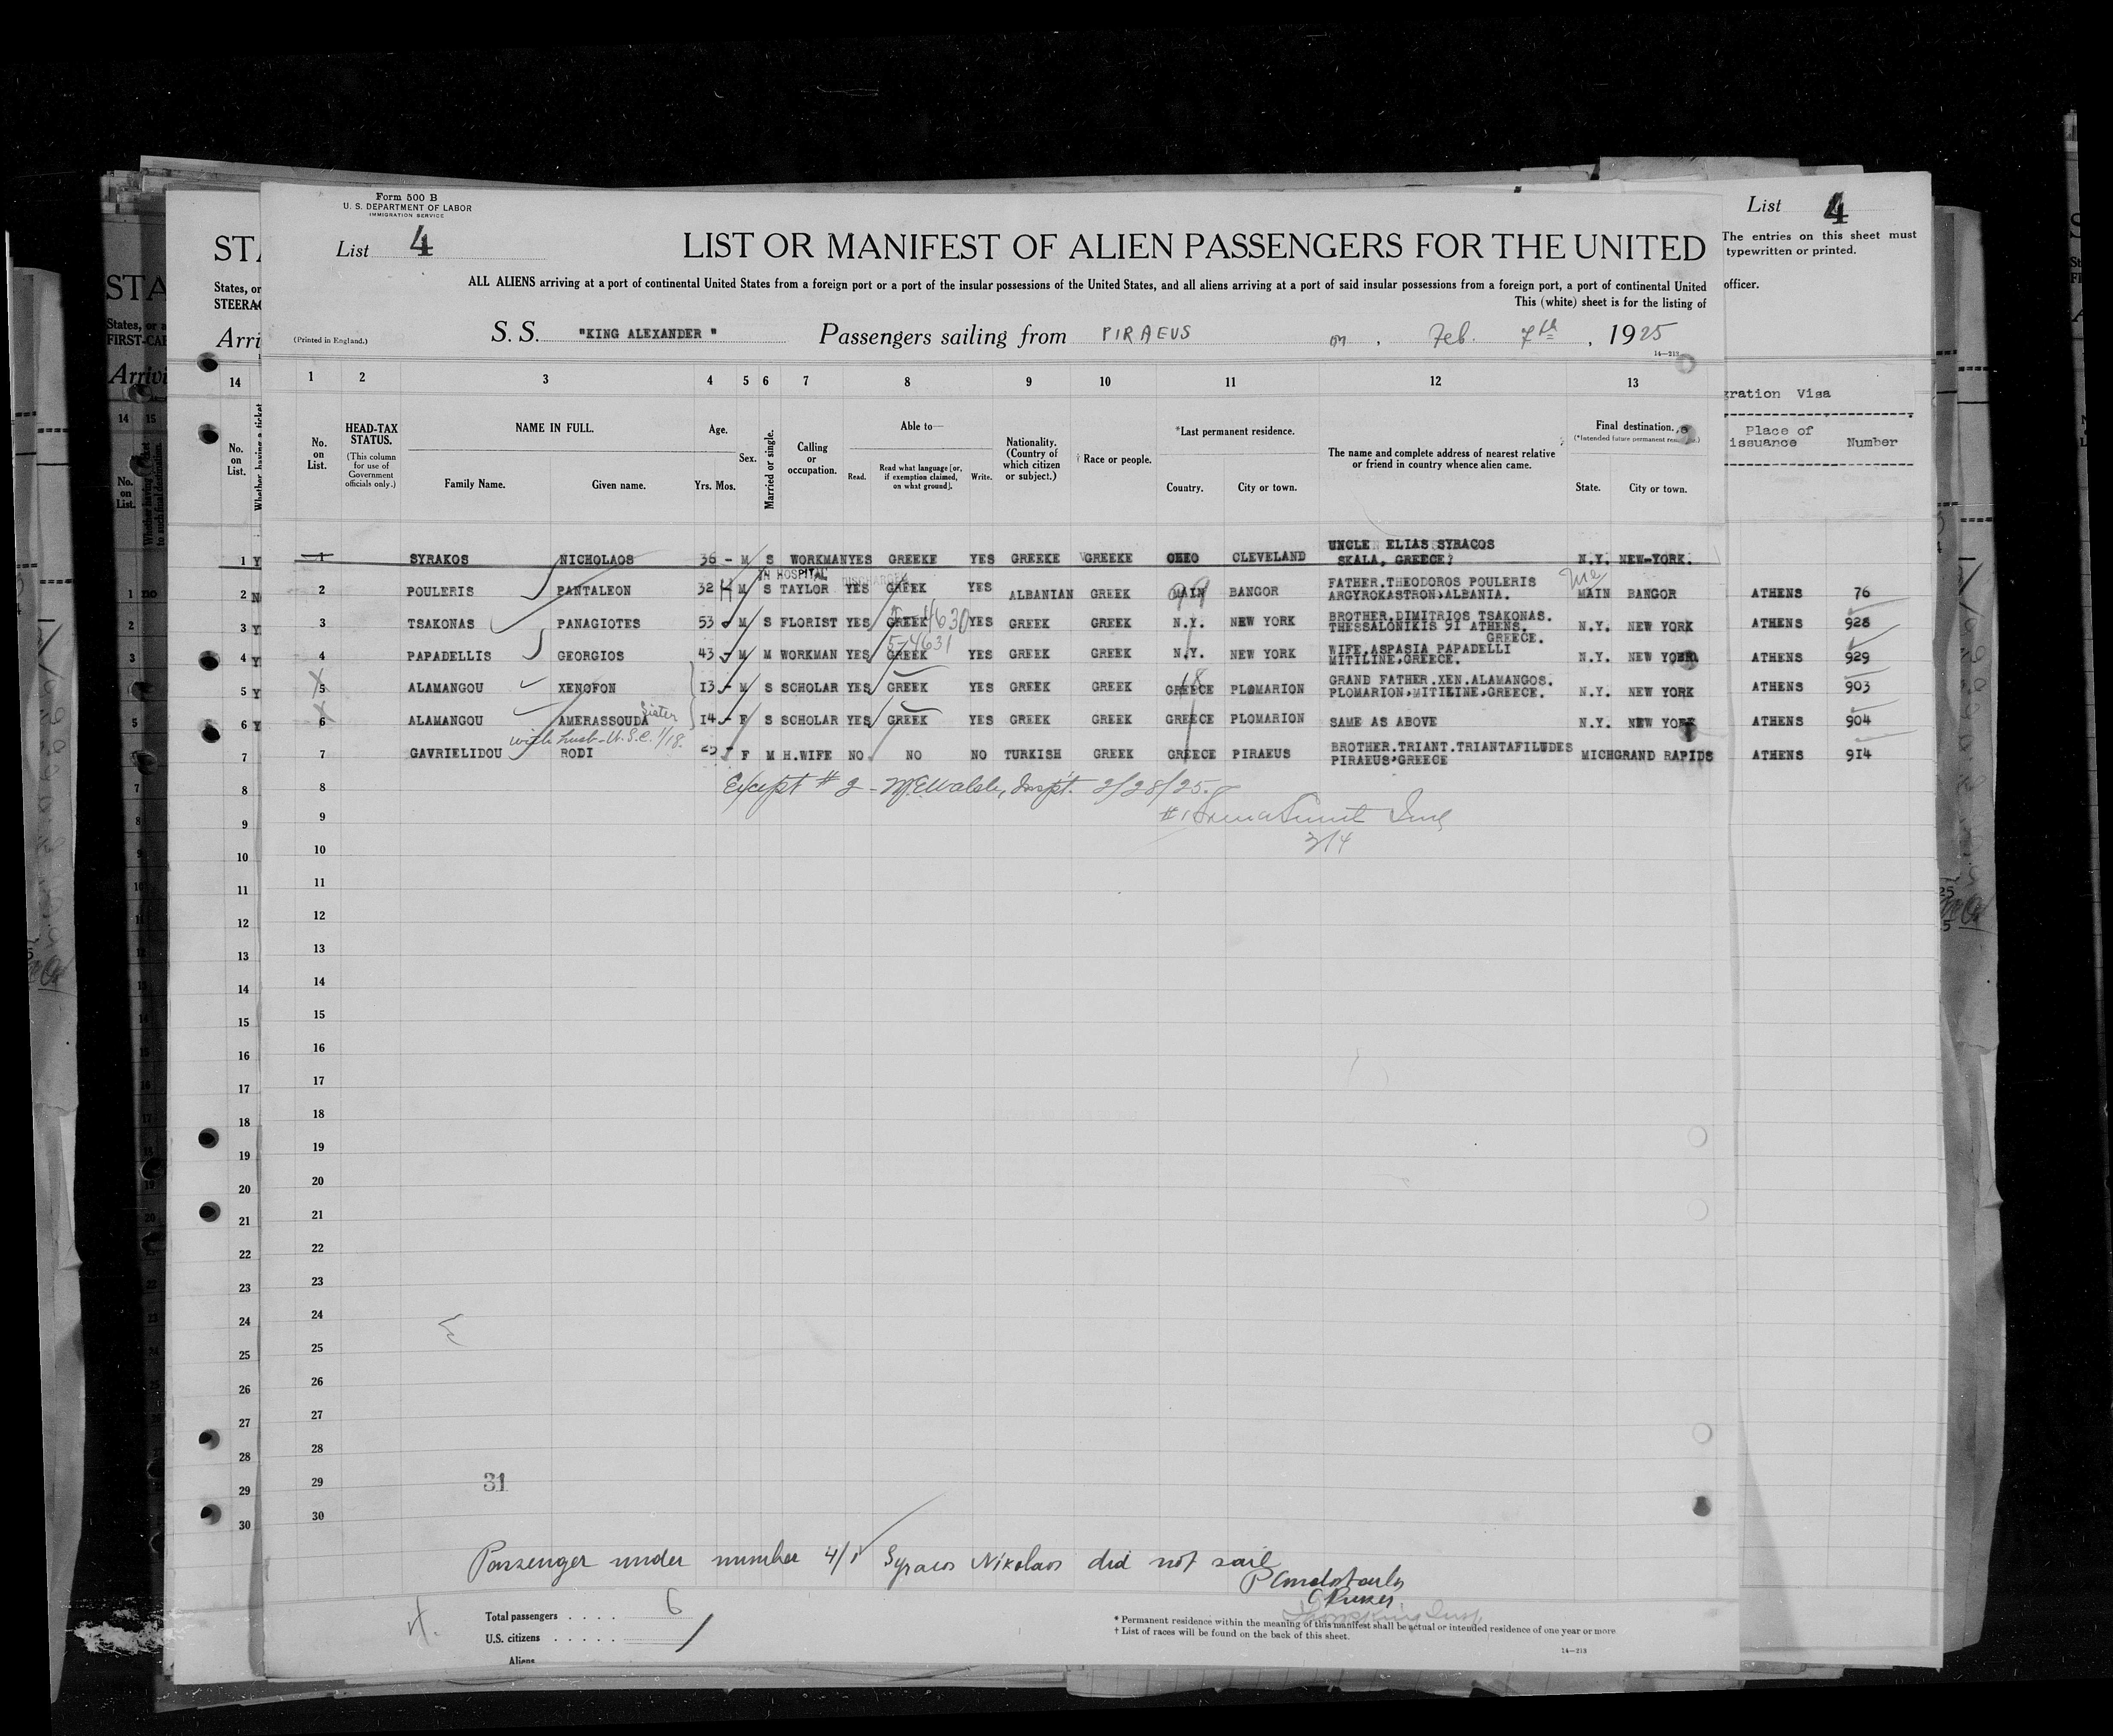 Form 500 B
U. S. DEPARTMENT OF LABOR
IMMIGRATION SERVICE
List 4
LIST OR MANIFEST OF ALIEN PASSENGERS FOR THE UNITED
ALL ALIENS arriving at a port of continental United States from a foreign port or a port of the insular possessions of the United States, and all aliens arriving at a port of said insular possessions from a foreign port, a port of continental United
This (white) sheet is for the listing of
(Printed in England.)
S. S. "KING ALEXANDER" Passengers sailing from PIRAEUS on, Feb. 7th, 1925
14—213
List 4
The entries on this sheet must
typewritten or printed.
officer.
STA
States, or
STEERAG
Arri
STA
States, or a
FIRST-CAB
Arrivi
1 2 3 4 5 6 7 8 9 10 11 12 13
No. on List.
HEAD-TAX STATUS.
(This column for use of Government officials only.)
NAME IN FULL.
Family Name. Given name.
Age.
Yrs. Mos.
Sex.
Married or single.
Calling or occupation.
Able to—
Read. Read what language [or, if exemption claimed, on what ground]. Write.
Nationality. (Country of which citizen or subject.)
† Race or people.
*Last permanent residence.
Country. City or town.
The name and complete address of nearest relative or friend in country whence alien came.
Final destination.
(*Intended future permanent
State. City or town.
gration Visa
Place of issuance Number
14
No. on List.
Whether having a ticket
14 15
No. on List.
Whether having a ticket to such final destination.
1 SYRAKOS NICHOLAOS 36 - M S WORKMAN YES GREEKE YES GREEKE GREEKE OHIO CLEVELAND UNCLE ELIAS SYRACOS SKALA, GREECE? N.Y. NEW-YORK.
IN HOSPITAL DISCHARGED
2 POULERIS PANTALEON 32 M S TAYLOR YES GREEK YES ALBANIAN GREEK MAIN BANGOR FATHER.THEODOROS POULERIS ARGYROKASTRON,ALBANIA. Me MAIN BANGOR ATHENS 76
3 TSAKONAS PANAGIOTES 53 M S FLORIST YES GREEK 5-4630 YES GREEK GREEK N.Y. NEW YORK BROTHER.DIMITRIOS TSAKONAS. THESSALONIKIS 91 ATHENS. GREECE. N.Y. NEW YORK ATHENS 928
5-4631
4 PAPADELLIS GEORGIOS 43 M M WORKMAN YES GREEK YES GREEK GREEK N.Y. NEW YORK WIFE.ASPASIA PAPADELLI MITILINE,GREECE. N.Y. NEW YORK ATHENS 929
5 ALAMANGOU XENOFON 13 - M S SCHOLAR YES GREEK YES GREEK GREEK GREECE PLOMARION GRAND FATHER.XEN.ALAMANGOS. PLOMARION,MITILINE,GREECE. N.Y. NEW YORK ATHENS 903
6 ALAMANGOU AMERASSOUDA Sister 14 - F S SCHOLAR YES GREEK YES GREEK GREEK GREECE PLOMARION SAME AS ABOVE N.Y. NEW YORK ATHENS 904
with husb-U.S.C. 1/18.
7 GAVRIELIDOU RODI F M H.WIFE NO NO NO TURKISH GREEK GREECE PIRAEUS BROTHER.TRIANT.TRIANTAFILUDES PIRAEUS,GREECE MICH GRAND RAPIDS ATHENS 914
8
Except # 2 - Inspt. 2/28/25.
9
3/4
10
11
12
13
14
15
16
17
18
19
20
21
22
23
24
25
26
27
28
29
31
30
Passenger under number 4/1 Syracos Nikolaos did not sail
Purser
Total passengers . . . . 6
U.S. citizens . . . . .
Aliens
* Permanent residence within the meaning of this manifest shall be actual or intended residence of one year or more
† List of races will be found on the back of this sheet.
14—213